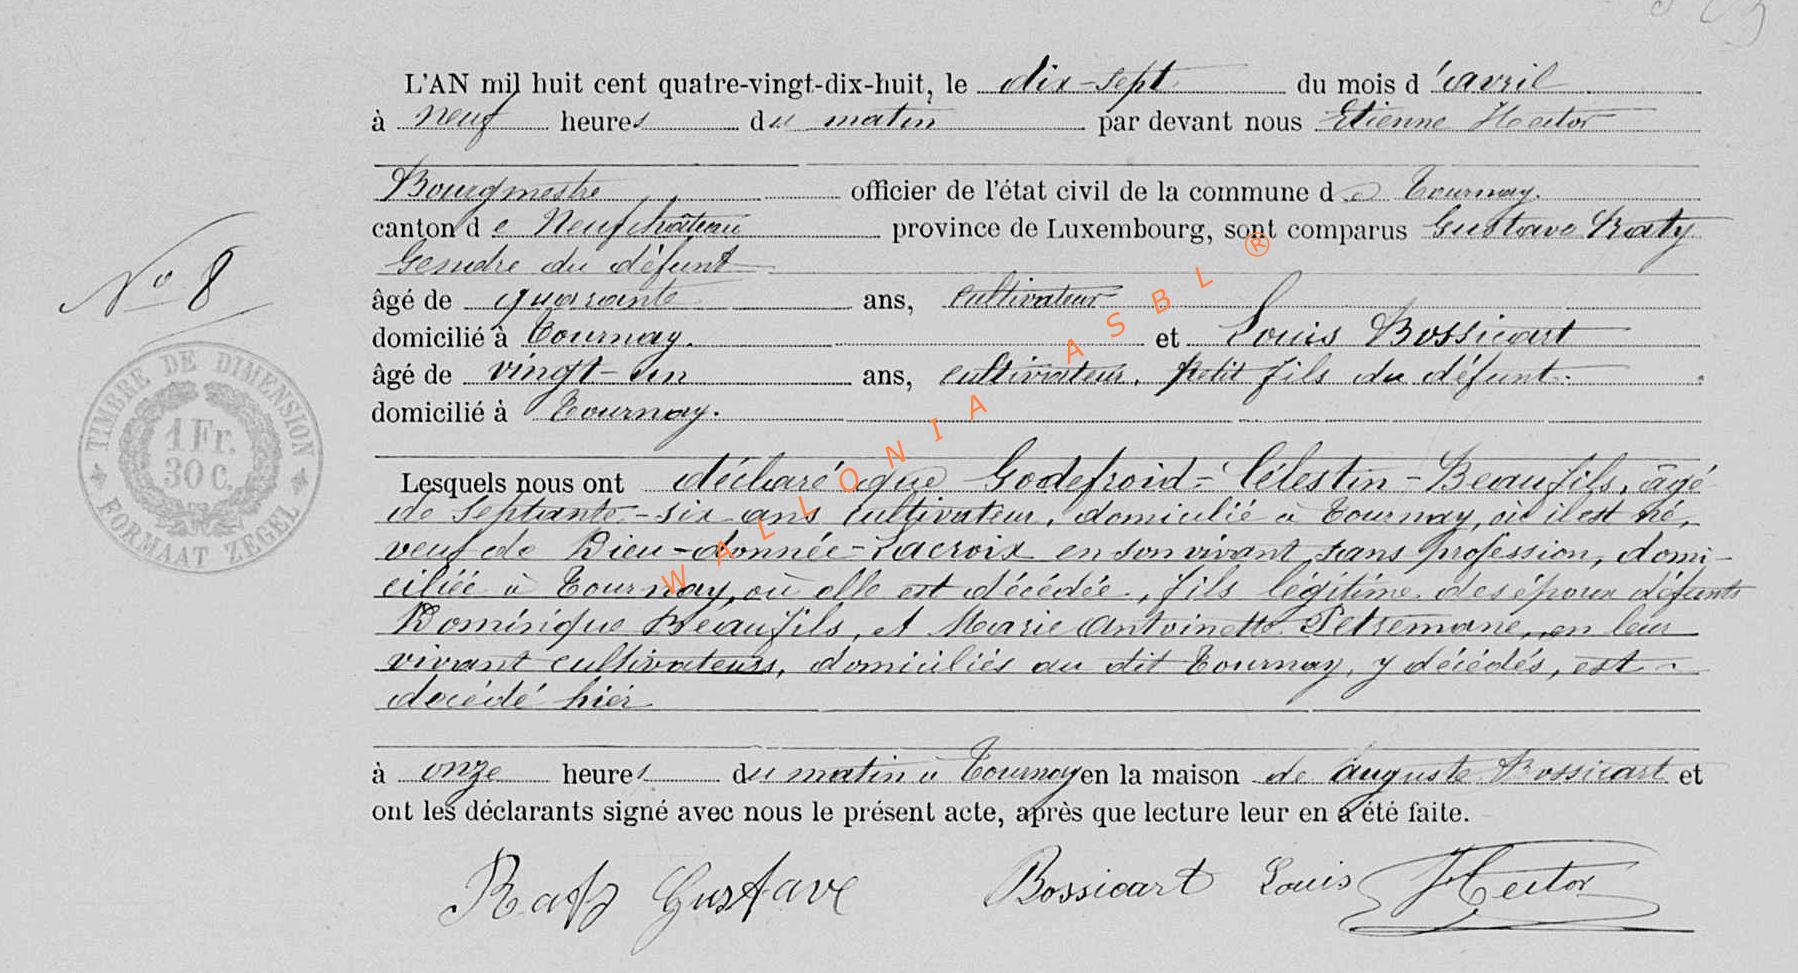 L'AN mil huit cent quatre-vingt-dix-huit, le dix-sept du mois d'avril
à neuf heures du matin par devant nous Etienne Hector
Bourgmestre officier de l'état civil de la commune de Tournay.
canton de Neufchâteau province de Luxembourg, sont comparus Gustave Raty
Gendre du défunt
No 8
âgé de quarante ans, cultivateur
domicilié à Tournay. et Louis Bossicart
âgé de vingt-un ans, cultivateur, petit fils du défunt.
domicilié à Tournay.
TIMBRE DE DIMENSION
1 Fr.
30 C.
FORMAAT ZEGEL
Lesquels nous ont déclaré que Godefroid-Célestin-Beaufils, âgé
de septante-six ans cultivateur, domicilié à Tournay, où il est né,
veuf de Dieu-donnée-Lacroix en son vivant sans profession, domi-
ciliée à Tournay, où elle est décédée, fils légitime des époux défunts
Dominique Beaufils, et Marie Antoinette Petremane, en leur
vivant cultivateurs, domiciliés au dit Tournay, y décédés, est
décédé hier
à onze heures du matin à Tournay en la maison de Auguste Bossicart et
ont les déclarants signé avec nous le présent acte, après que lecture leur en a été faite.
Raty Gustave Bossicart Louis Hector
WALLONIA ASBL ®